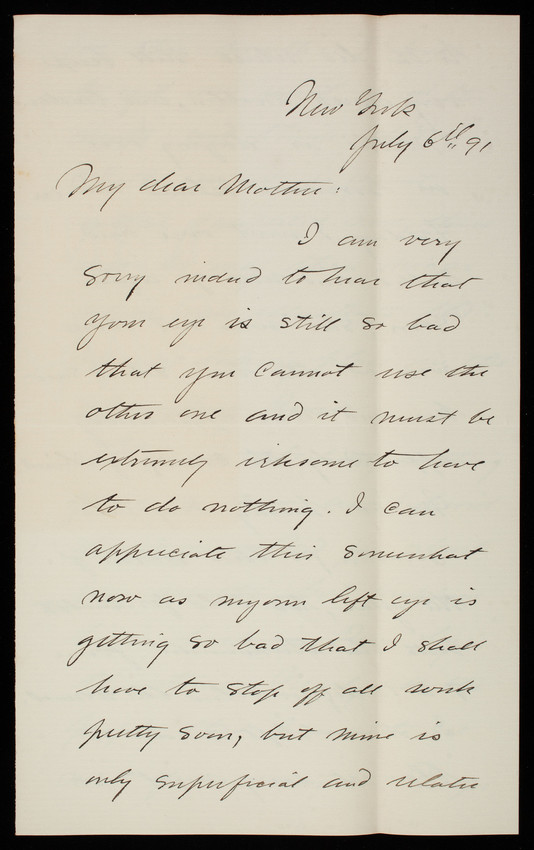 New York
July 6th 91
My dear Mother:
I am very
sorry indeed to hear that
your eye is still so bad
that you cannot use the
other one and it must be
extremely irksome to have
to do nothing. I can
appreciate this somewhat
now as my own left eye is
getting so bad that I shall
have to stop off all work
pretty soon, but mine is
only superficial and relates